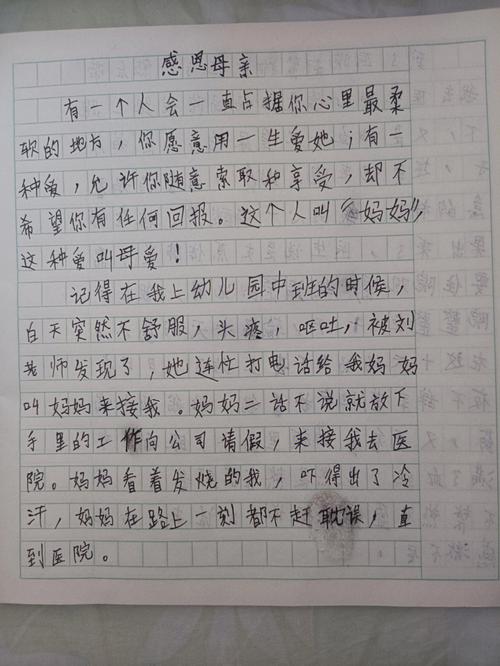 感恩母亲
有一个人会一直占据你心里最柔
软的地方，你愿意用一生爱她；有一
种爱，允许你随意索取和享受，却不
希望你有任何回报。这个人叫“妈妈”，
这种爱叫母爱！
记得在我上幼儿园中班的时候，
白天突然不舒服，头疼，呕吐，被刘
老师发现了，她连忙打电话给我妈妈
叫妈妈来接我。妈妈二话不说就放下
手里的工作向公司请假，来接我去医
院。妈妈看着发烧的我，吓得出了冷
汗，妈妈在路上一刻都不赶耽误，直
到医院。